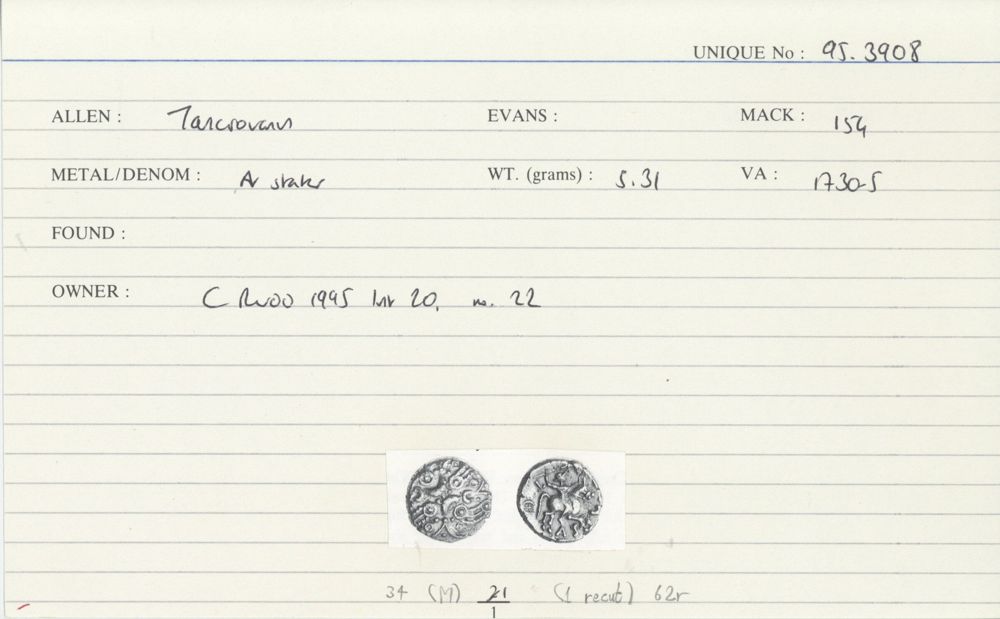 UNIQUE No : 95.3908
ALLEN : Tasciovanus EVANS : MACK : 154
METAL/DENOM : AV stater WT. (grams) : 5.31 VA : 1730-5
FOUND :
OWNER : C Rudd 1995 list 20, no. 22
34 (M) 21 (1 recut) 62r
1